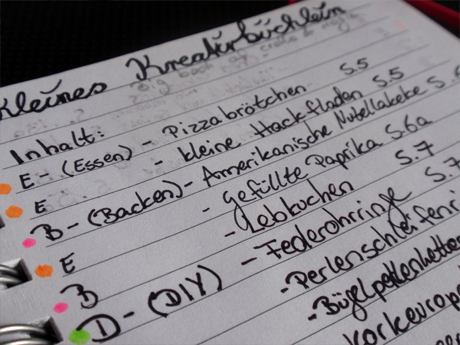 Kleines Kreativbüchlein
Inhalt:
E - (Essen) - Pizzabrötchen S.5
E - kleine Hackfladen S.5
B - (Backen) - Amerikanische Nutellakekse S.6
E - Gefüllte Paprika S.6a
B - Lebkuchen S.7
D - (DIY) - Federohrringe S.7
- Perlenschleifenri
- Bügelperlenketten
Korkeuropa